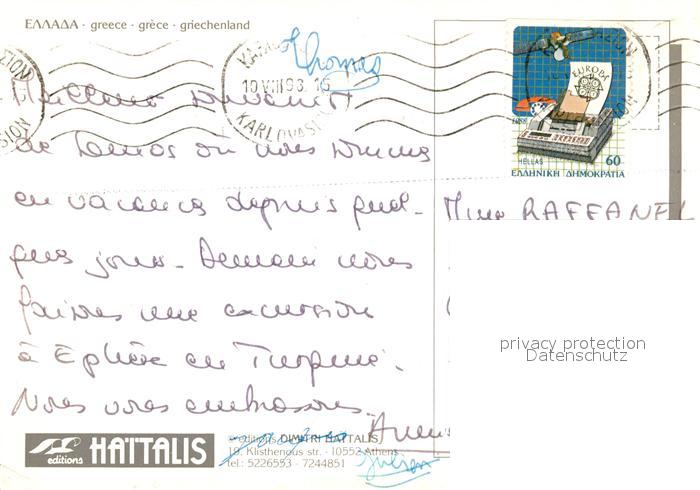 ΕΛΛΑΔΑ · greece · grèce · griechenland
Thomas
10 VIII 93 16
KARLOVASI
EUROPA
1988
HELLAS 60
ΕΛΛΗΝΙΚΗ ΔΗΜΟΚΡΑΤΙΑ
Meilleurs souvenirs
de Samos où nous sommes
en vacances depuis quel-
ques jours. Demain nous
faisons une excursion
à Ephèse en Turquie.
Nous vous embrassons.
Mme RAFFANEL
privacy protection
Datenschutz
editions HAÏTALIS
editions DIMITRI HAÏTALIS
19, Klisthenous str. - 10552 Athens
tel.: 5226553 - 7244851
Julien